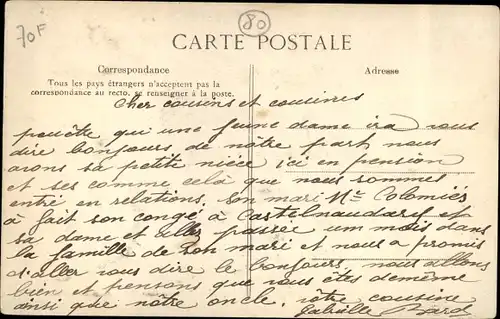 70F
80
CARTE POSTALE
Correspondance
Adresse
Tous les pays étrangers n'acceptent pas la
correspondance au recto, se renseigner à la poste.
Cher cousins et cousines
peutête qui une jeune dame ira vous
dire bonjours de nôtre part nous
avons sa petite nièce ici en pension
et ses comme celà que nous sommes
entré en relations, son mari Mr Colomiés
à fait son congé à Castelnaudary et
sa dame et aller passée um mois dans
la famille de son mari et nous a promis
d'aller vous dire le bonjours, nous allons
bien et pensons que vous êtes demême
ainsi que nôtre oncle, vôtre cousine